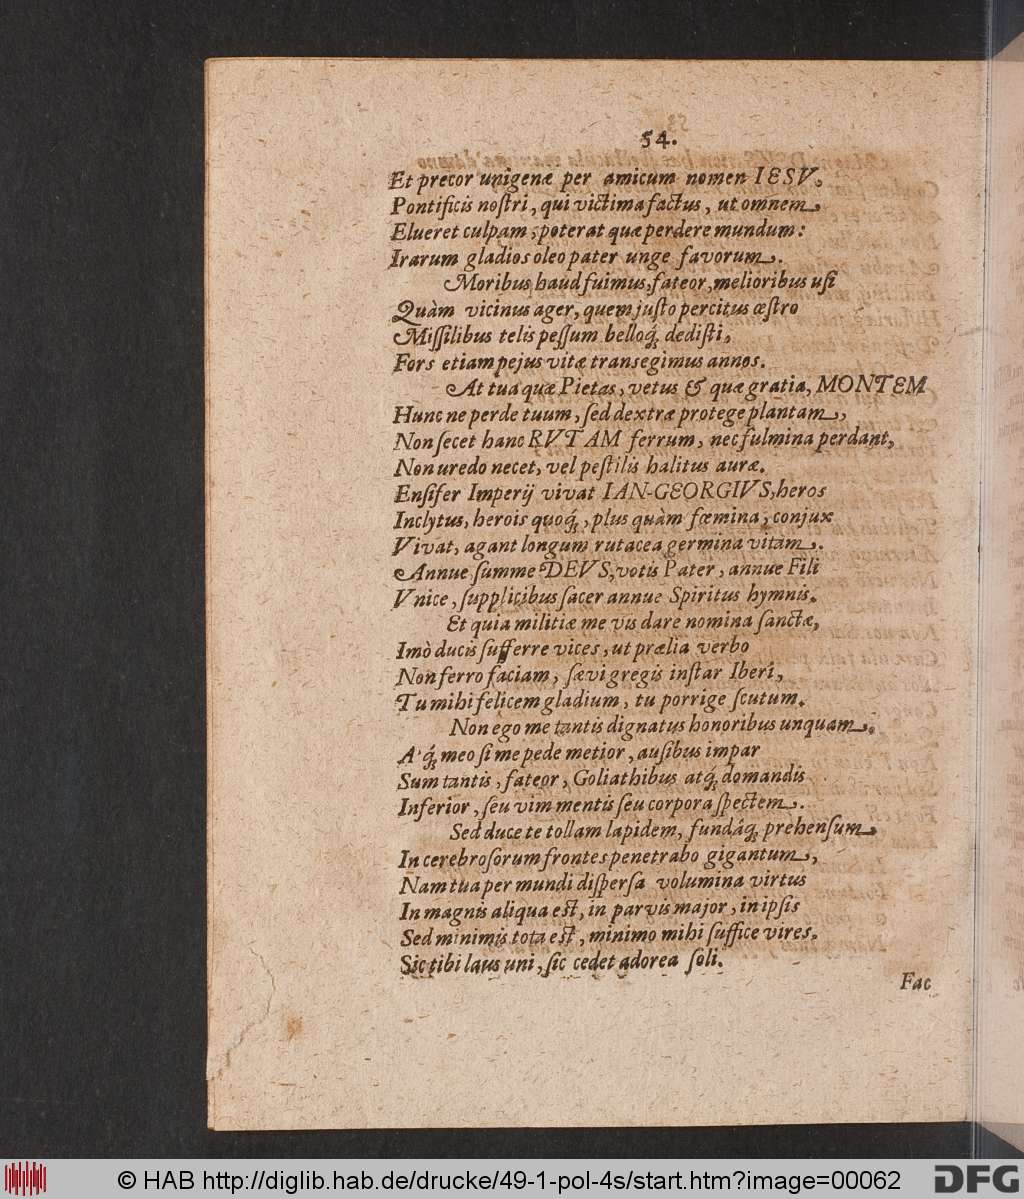 54.
Et precor unigenæ per amicum nomen IESV.
Pontificis noſtri, qui victima factus, ut omnem
Elueret culpam, poterat quæ perdere mundum:
Irarum gladios oleo pater unge favorum.
Moribus haud fuimus, fateor, melioribus uſi
Quàm vicinus ager, quem juſto percitus œſtro
Miſſilibus telis peſſum belloq́; dediſti,
Fors etiam pejus vitæ transegimus annos.
At tua quæ Pietas, vetus & quæ gratia, MONTEM
Hunc ne perde tuum, ſed dextræ protege plantam,
Non ſecet hanc RVTAM ferrum, nec fulmina perdant,
Non uredo necet, vel peſtilis halitus auræ.
Enſifer Imperij vivat IAN-GEORGIVS, heros
Inclytus, herois quoq́;, plus quàm fœmina, conjux
Vivat, agant longum rutacea germina vitam.
Annue ſumme DEVS, votis Pater, annue Fili
Vnice, ſupplicibus ſacer annue Spiritus hymnis.
Et quia militiæ me vis dare nomina ſanctæ,
Imò ducis ſufferre vices, ut prælia verbo
Non ferro faciam, ſævi gregis inſtar Iberi,
Tu mihi felicem gladium, tu porrige ſcutum.
Non ego me tantis dignatus honoribus unquam.
Aq́; meo ſi me pede metior, auſibus impar
Sum tantis, fateor, Goliathibus atq́; domandis
Inferior, ſeu vim mentis ſeu corpora ſpectem.
Sed duce te tollam lapidem, fundâq́; prehenſum
In cerebroſorum frontes penetrabo gigantum,
Nam tua per mundi diſperſa volumina virtus
In magnis aliqua eſt, in parvis major, in ipſis
Sed minimis tota eſt, minimo mihi ſuffice vires.
Sic tibi laus uni, ſic cedet adorea ſoli.
Fac
© HAB http://diglib.hab.de/drucke/49-1-pol-4s/start.htm?image=00062
DFG